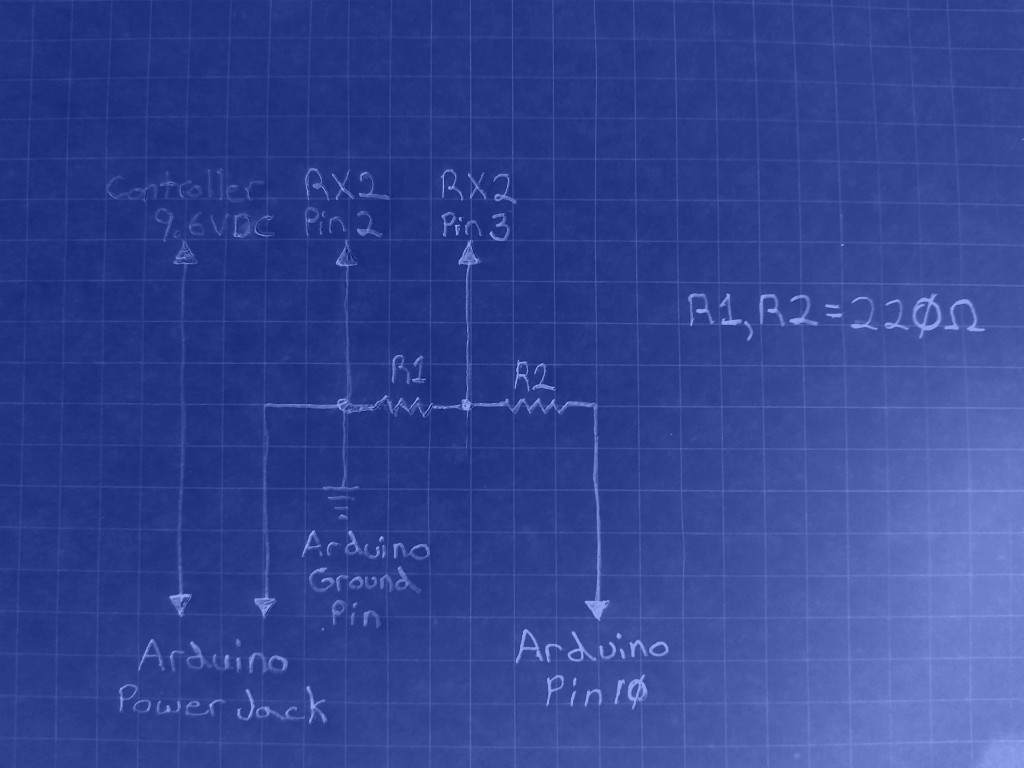 Controller
9.6VDC
RX2
Pin 2
RX2
Pin 3
R1,R2=220Ω
R1
R2
Arduino
Ground
Pin
Arduino
Power Jack
Arduino
Pin 10